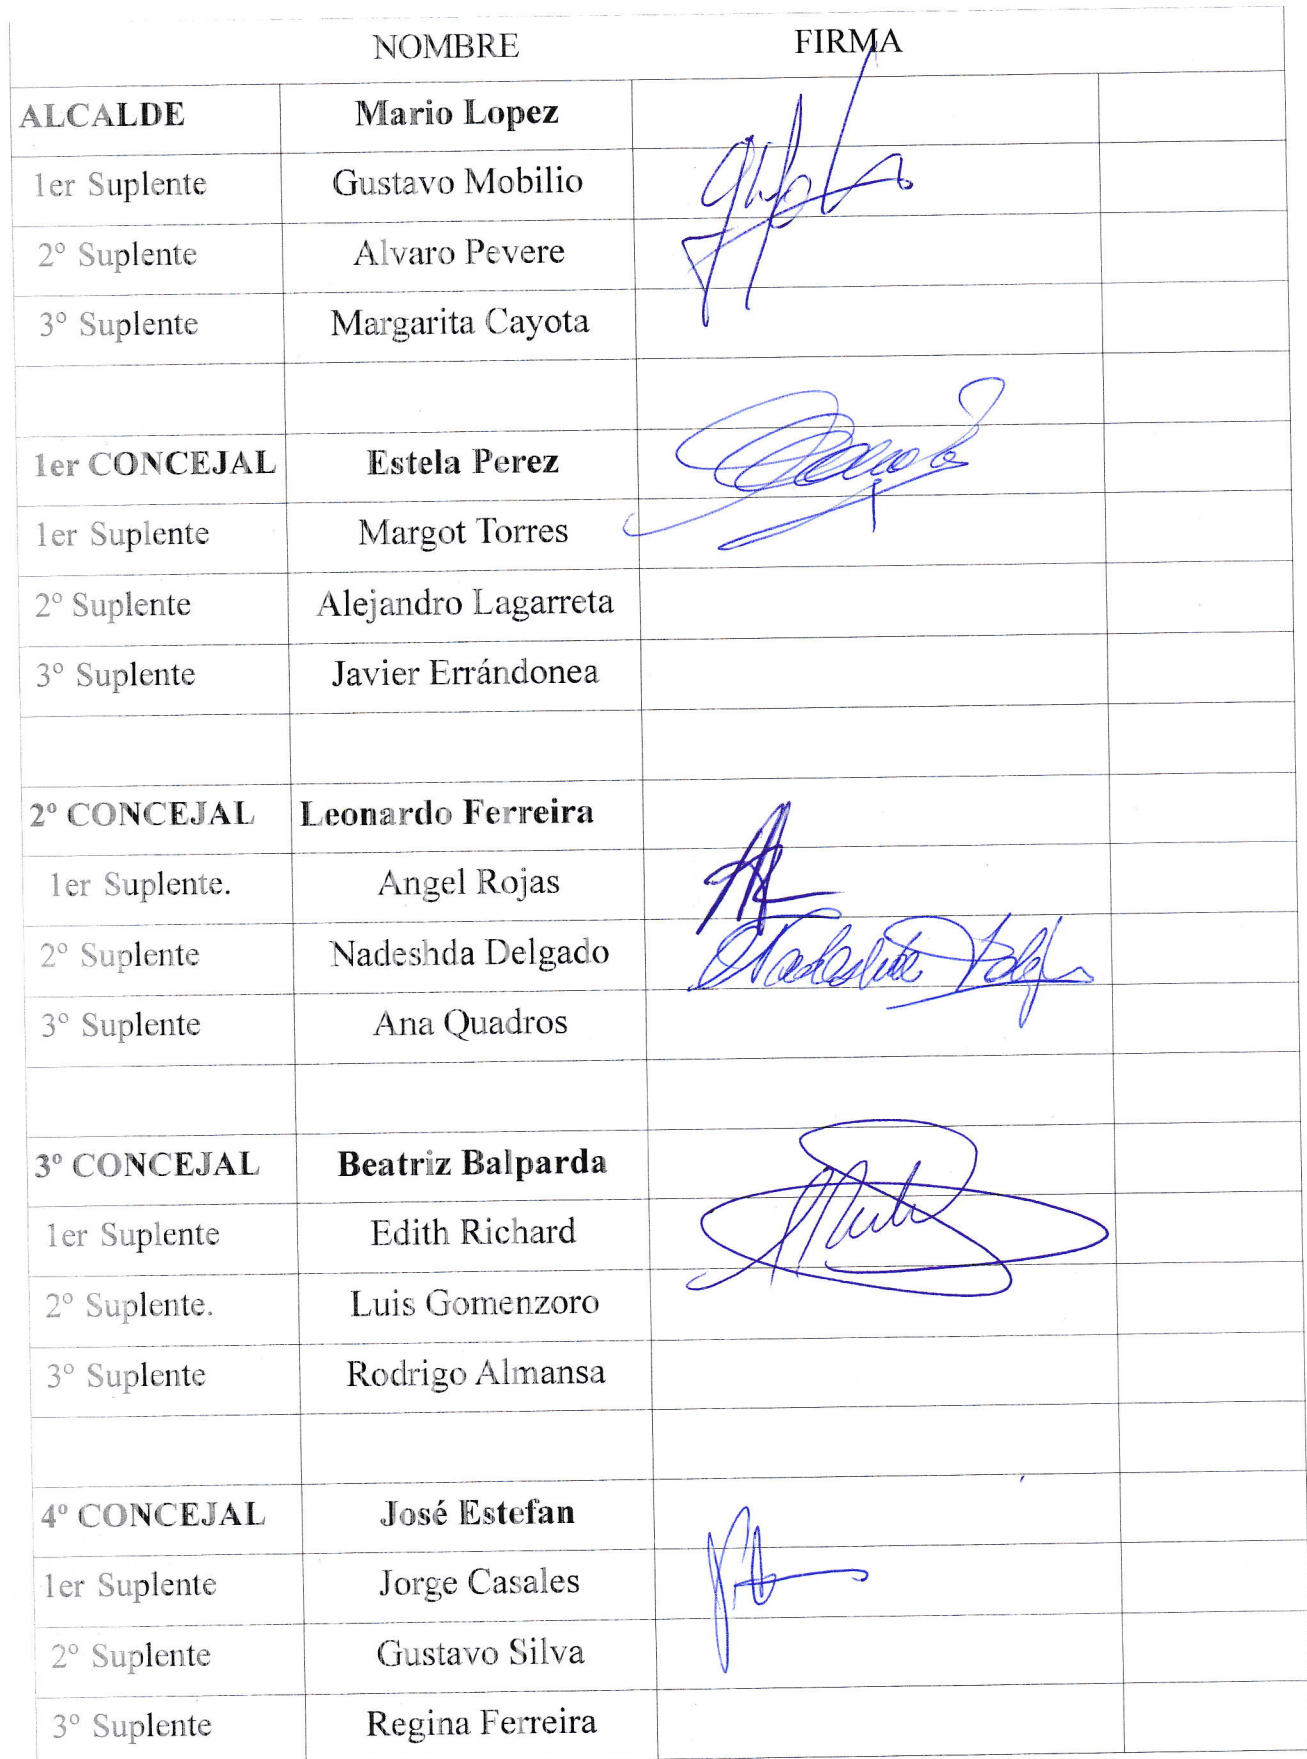 NOMBRE FIRMA
ALCALDE Mario Lopez
1er Suplente Gustavo Mobilio
2º Suplente Alvaro Pevere
3º Suplente Margarita Cayota
1er CONCEJAL Estela Perez
1er Suplente Margot Torres
2º Suplente Alejandro Lagarreta
3º Suplente Javier Errándonea
2º CONCEJAL Leonardo Ferreira
1er Suplente. Angel Rojas
2º Suplente Nadeshda Delgado Nadeshda
3º Suplente Ana Quadros
3º CONCEJAL Beatriz Balparda
1er Suplente Edith Richard
2º Suplente. Luis Gomenzoro
3º Suplente Rodrigo Almansa
4º CONCEJAL José Estefan
1er Suplente Jorge Casales
2º Suplente Gustavo Silva
3º Suplente Regina Ferreira